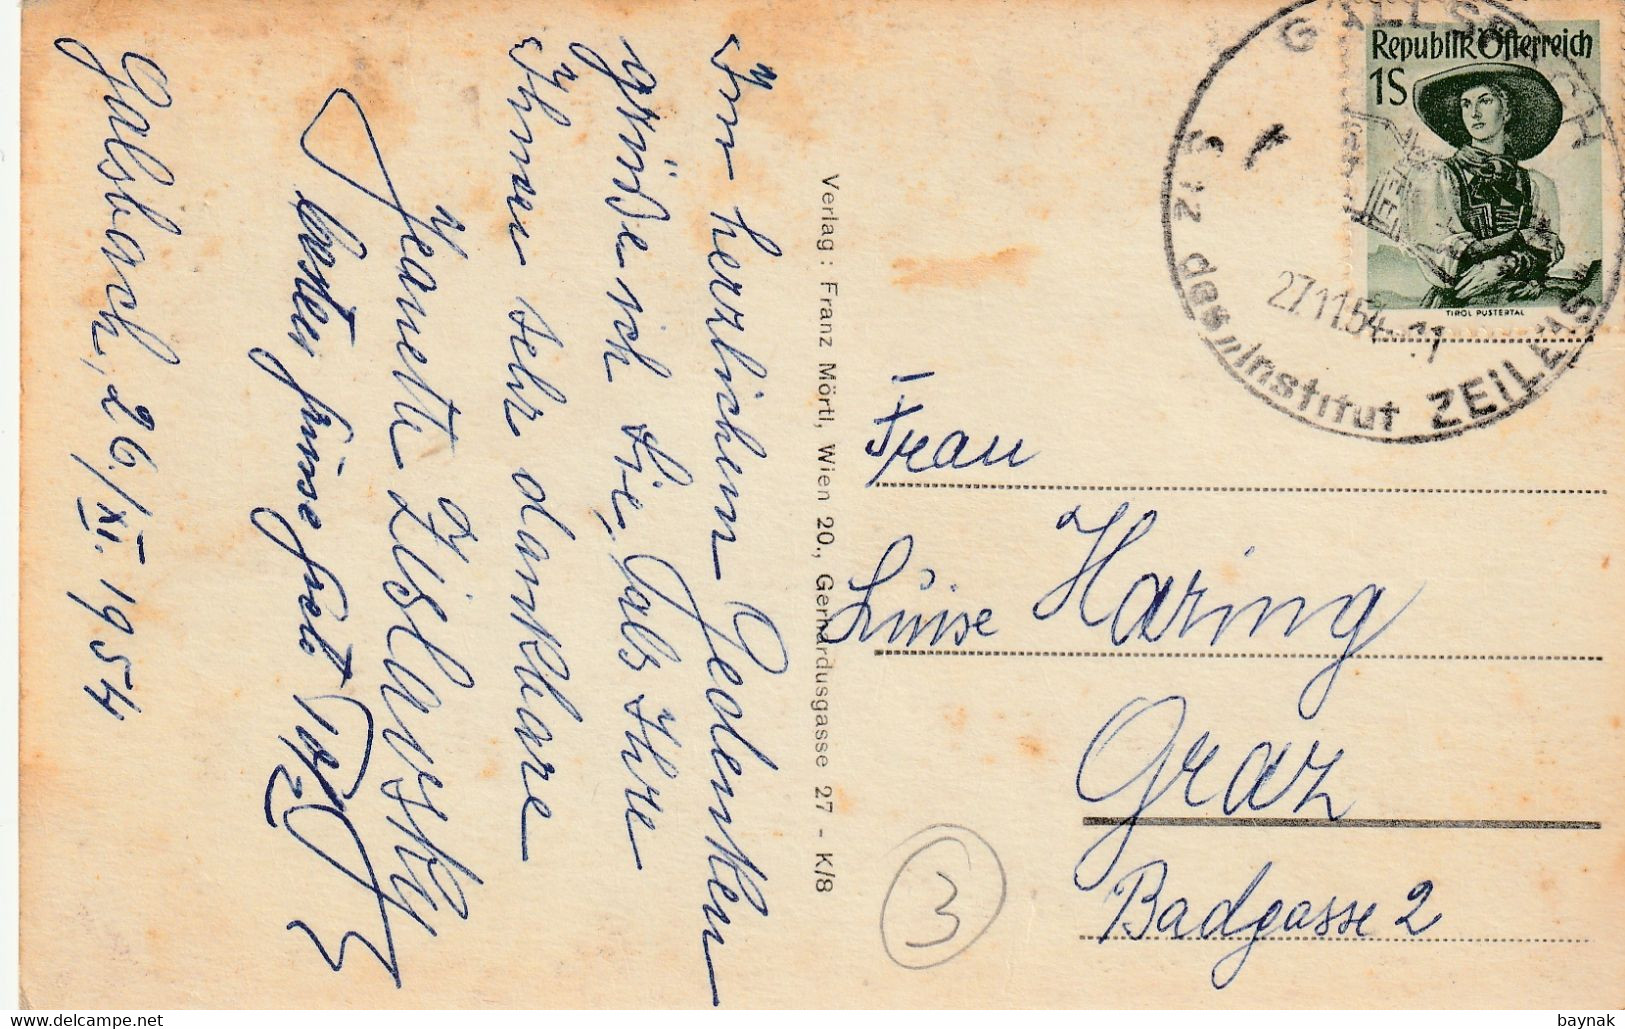 Galsbach, 26./XI. 1954
In herzlichem Gedenken
grüsse ich Sie, als Ihre
Ihnen sehr dankbare
Jeanette
besten
Verlag: Franz Mörtl, Wien 20., Gerhardusgasse 27 - K/8
Republik Österreich
1S
TIROL PUSTERTAL
GALLSBACH
Sitz des „Institut ZEILEIS
27.11.54-11
Frau
Luise Haring
Graz
Badgasse 2
3
baynak